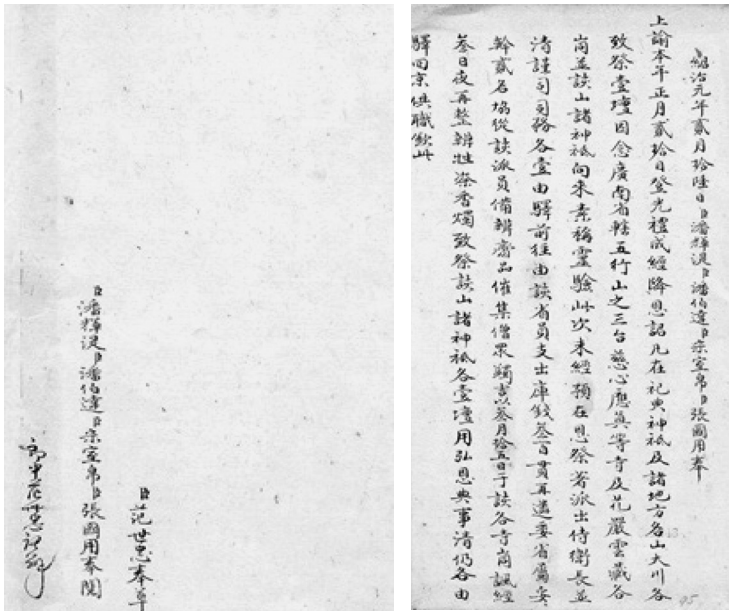 紹治元年貳月拾陸日臣潘輝湜臣潘伯達臣宗室帛臣張國用奉
上諭本年正月貳拾日登光禮成經降恩詔凡在祀典神祇及諸地方名山大川各
致祭壹壇因念廣南省轄五行山之三台慈心應真等寺及花嚴雲藏各
崗並該山諸神祇向來素稱靈驗此次未經預在恩祭著派出侍衛長並
清謹司司務各壹由驛前往由該省員支出庫錢叁百貫再遣委省屬委
幹貳名協從該派員備辦齋品催集僧眾蠲吉以叁月拾五日于該各寺崗諷經
叁日夜再整辦牲粢香燭致祭該山諸神祇各壹壇用弘恩典事清仍各由
驛回京供職欽此
95
臣范世忠奉草
臣潘輝湜臣潘伯達臣宗室帛臣張國用奉閱
郎中范世忠